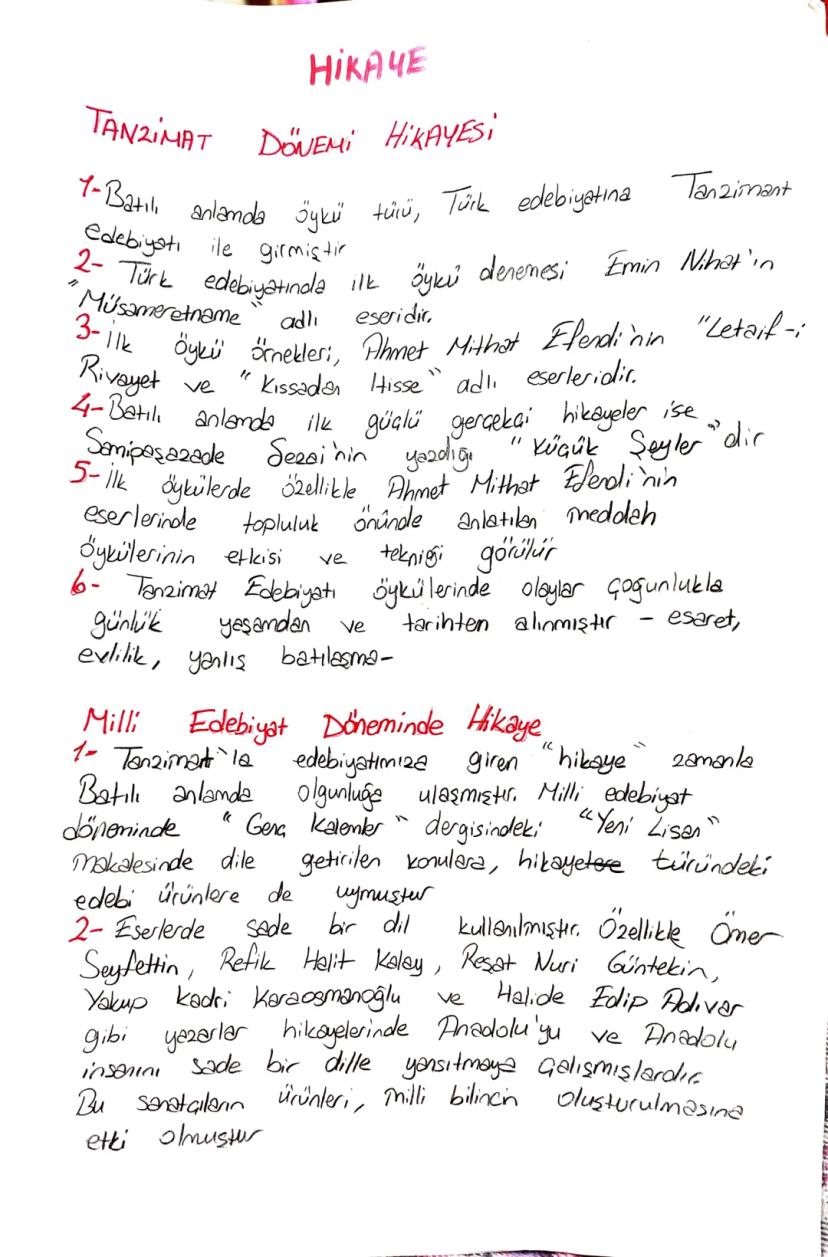 HİKAYE
TANZİMAT DÖNEMİ HİKAYESİ
1- Batılı anlamda öykü türü, Türk edebiyatına Tanzimant
edebiyatı ile girmiştir
2- Türk edebiyatında ilk öykü denemesi Emin Nihat'ın
"Müsameretname" adlı eseridir.
3- İlk öykü örnekleri, Ahmet Mithat Efendi'nin "Letaif-i
Rivayet ve "Kıssadan Hisse" adlı eserleridir.
4- Batılı anlamda ilk güçlü gerçekçi hikayeler ise
Samipaşazade Sezai'nin yazdığı "Küçük Şeyler"dir
5- İlk öykülerde özellikle Ahmet Mithat Efendi'nin
eserlerinde topluluk önünde anlatılan meddah
öykülerinin etkisi ve tekniği görülür
6- Tanzimat Edebiyatı öykülerinde olaylar çoğunlukla
günlük yaşamdan ve tarihten alınmıştır - esaret,
evlilik, yanlış batılaşma-
Milli Edebiyat Döneminde Hikaye
1- Tanzimat'la edebiyatımıza giren "hikaye" zamanla
Batılı anlamda olgunluğa ulaşmıştır. Milli edebiyat
döneminde "Genç Kalemler" dergisindeki "Yeni Lisan"
makalesinde dile getirilen konulara, hikayetere türündeki
edebi ürünlere de uymuştur
2- Eserlerde sade bir dil kullanılmıştır. Özellikle Ömer
Seyfettin, Refik Halit Kalay, Reşat Nuri Güntekin,
Yakup Kadri Karaosmanoğlu ve Halide Edip Adıvar
gibi yazarlar hikayelerinde Anadolu'yu ve Anadolu
insanını sade bir dille yansıtmaya çalışmışlardır.
Bu sanatçıların ürünleri, milli bilincin oluşturulmasına
etki olmuştur